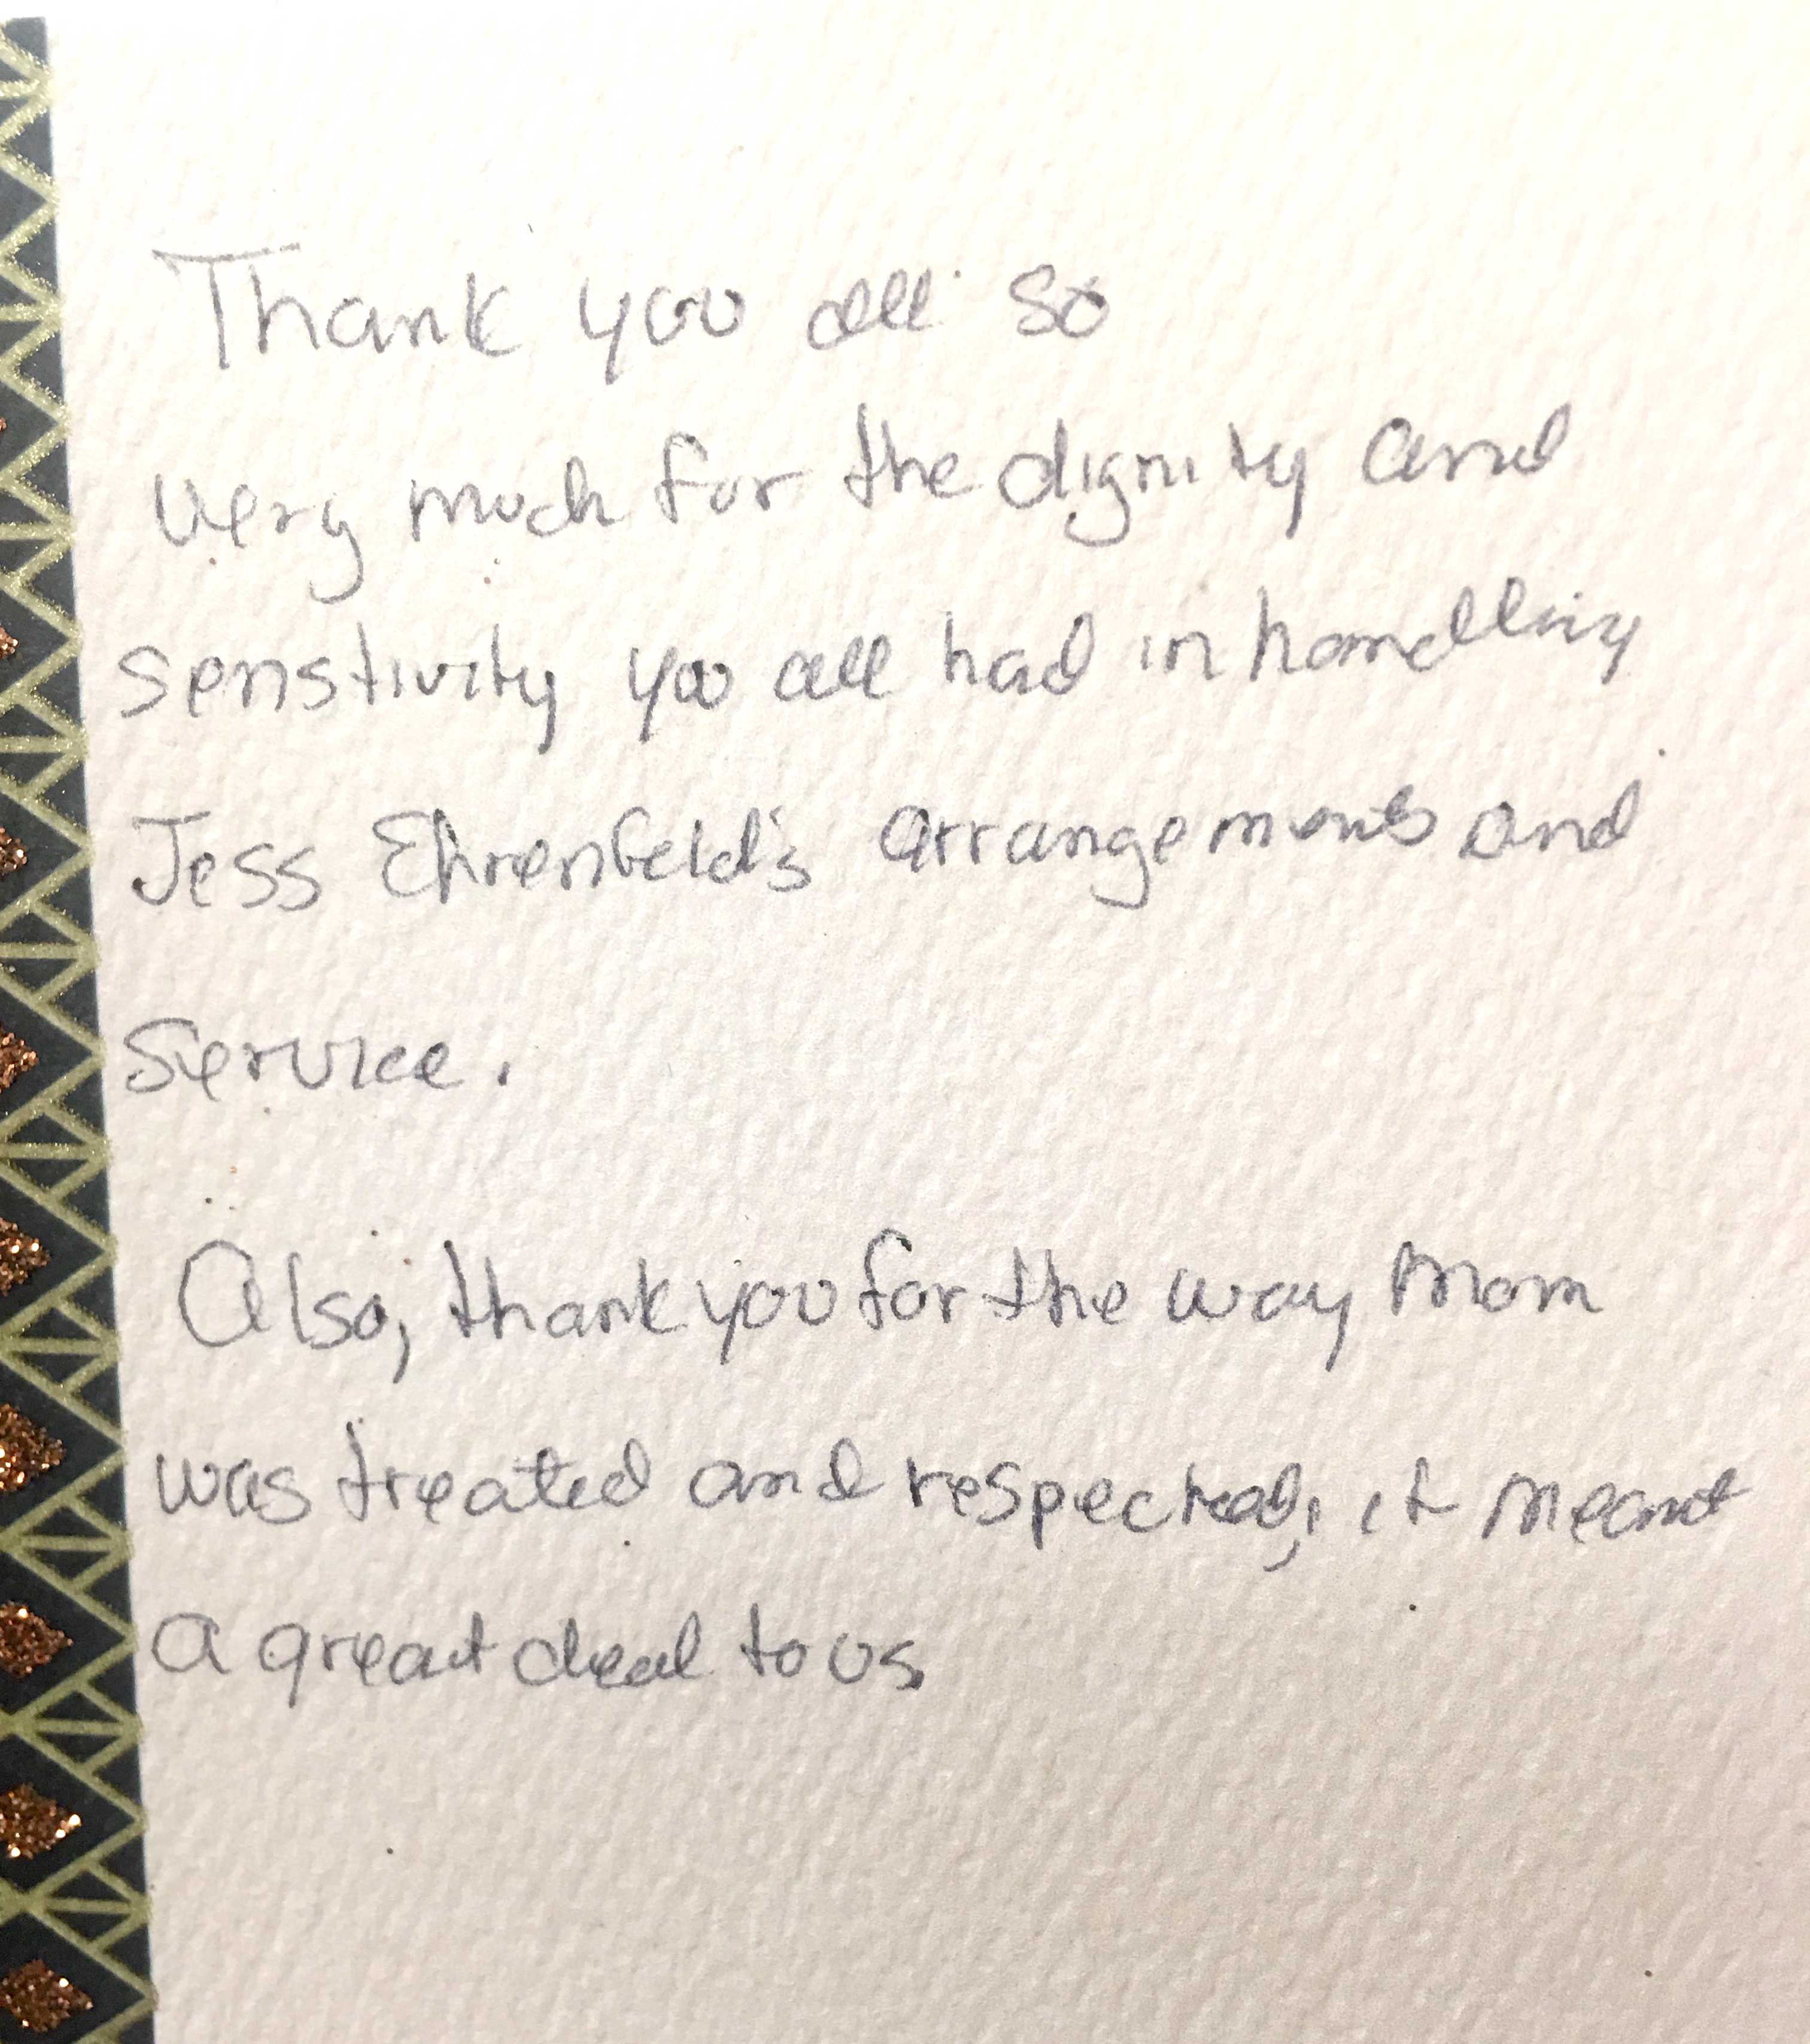 Thank you all so
very much for the dignity and
senstivity you all had in handling
Jess Ehrenfeld's arrangements and
Service.
Also, thank you for the way Mom
was treated and respected, it meant
a great deal to us.